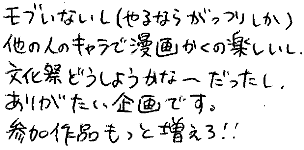 モブいないし(やるならがっつりしか)
他の人のキャラで漫画かくの楽しいし、
文化祭どうしようかなーだったし、
ありがたい企画です。
参加作品もっと増えろ!!